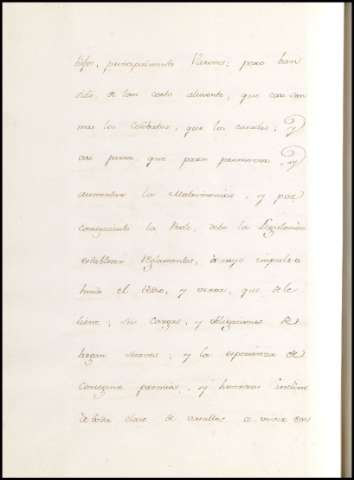 hijos, principalmente Varones; pero han
sido, de tan corto aliciente, que casi son
mas los Celibatos, que los casados; y
asi para, que para promover, y
aumentar los Matrimonios, y por
consiguiente la Prole, debe la Legislacion
establecer Reglamentos, à cuyo impulso
huia el tedio, y vivan, que de le
tiene, sus Cargas, y obligaciones se
hagan suaves; y la esperanza de
conseguir premios, y honores incline
à toda clase de vasallos a vivir con